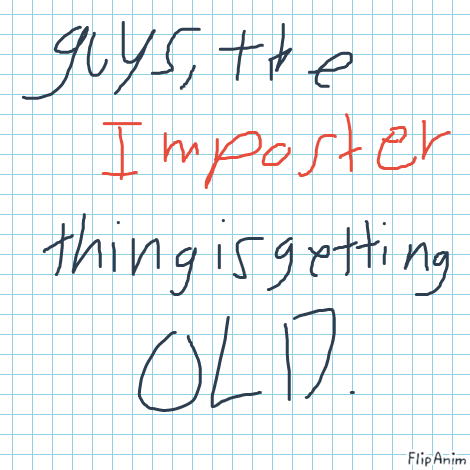 guys, the
Imposter
thing is getting
OLD.
FlipAnim